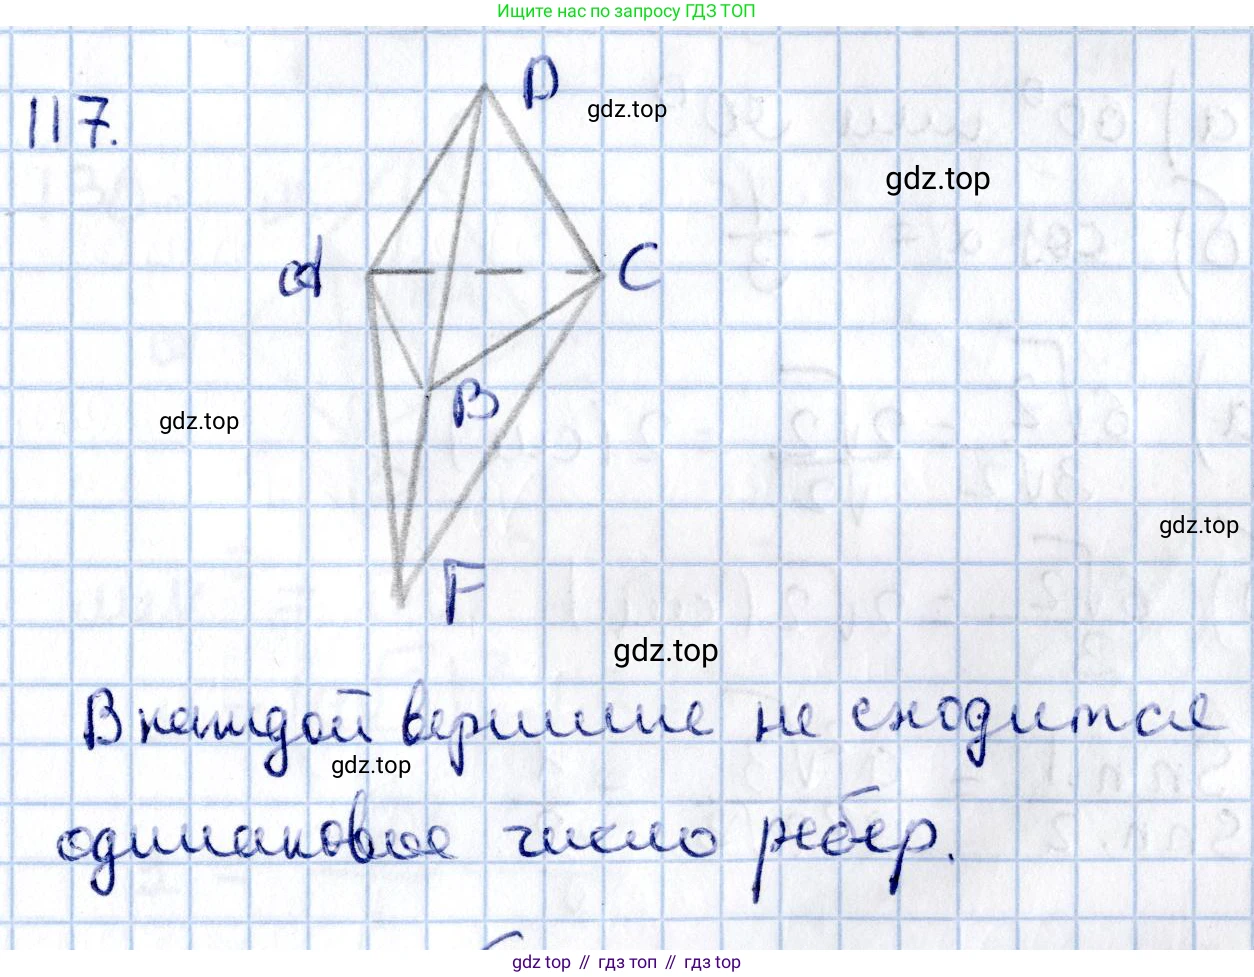 Ищите нас по запросу ГДЗ ТОП
117.
D
gdz.top
gdz.top
A
C
B
gdz.top
gdz.top
F
gdz.top
В каждой вершине не сходится
gdz.top
одинаковое число рёбер.
gdz top // гдз топ // гдз top